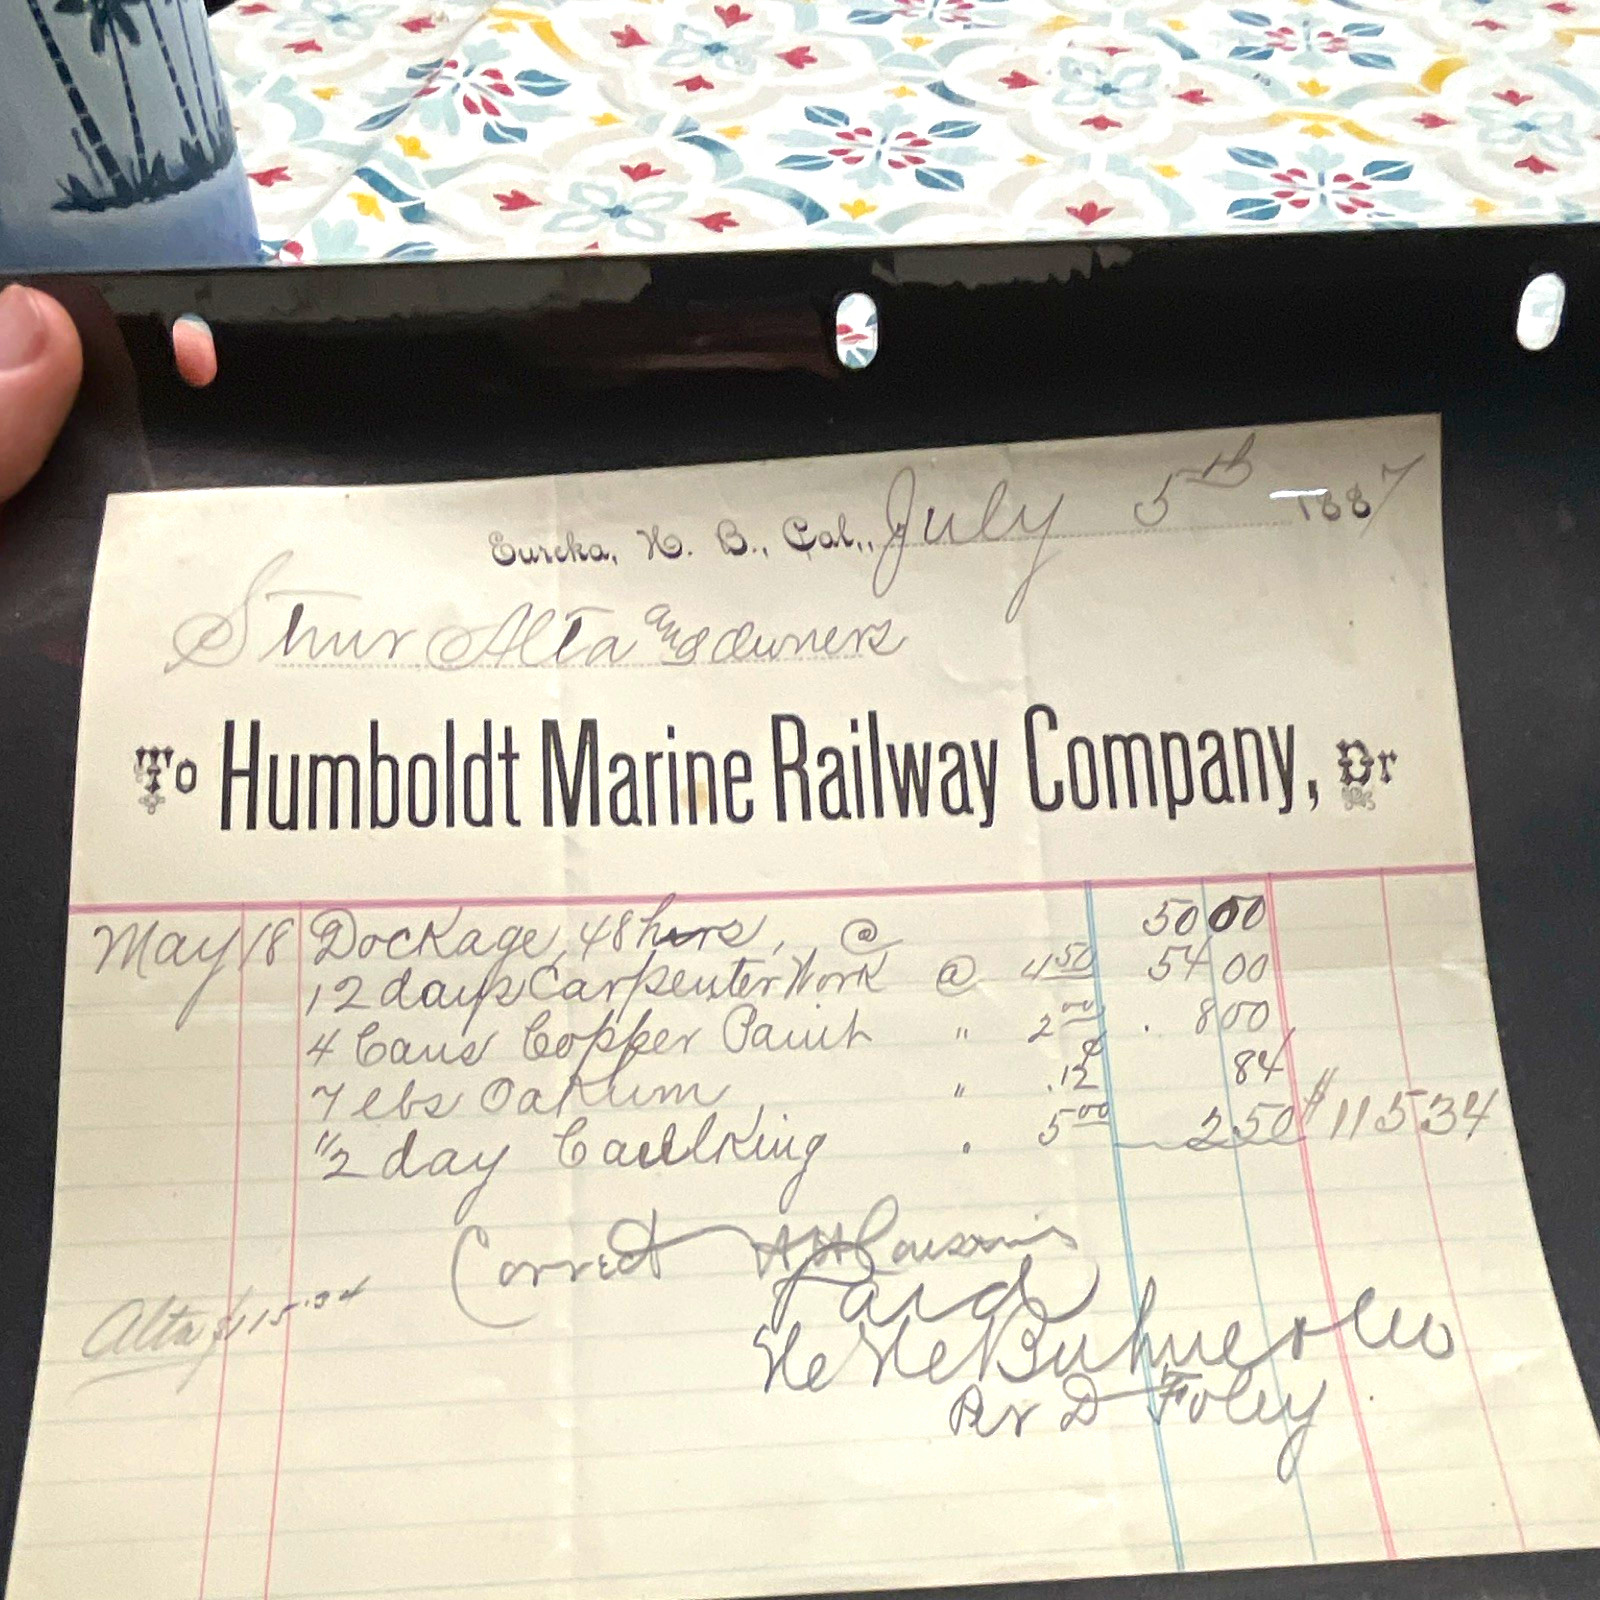 Eureka, H. B., Cal., July 5th 1887
Stmr Alta and Owners
To Humboldt Marine Railway Company, Dr
May 18 Dockage, 48 hurs, @ 50 00
12 days Carpenter Work @ 4 50 54 00
4 Cans Copper Paint " 2 00 8 00
7 lbs Oakum " .12 84
1/2 day Caulking " 5 00 2 50 $115 34
Correct
Paid
Alta $115.34
H H Buhne & Co
Per D Foley